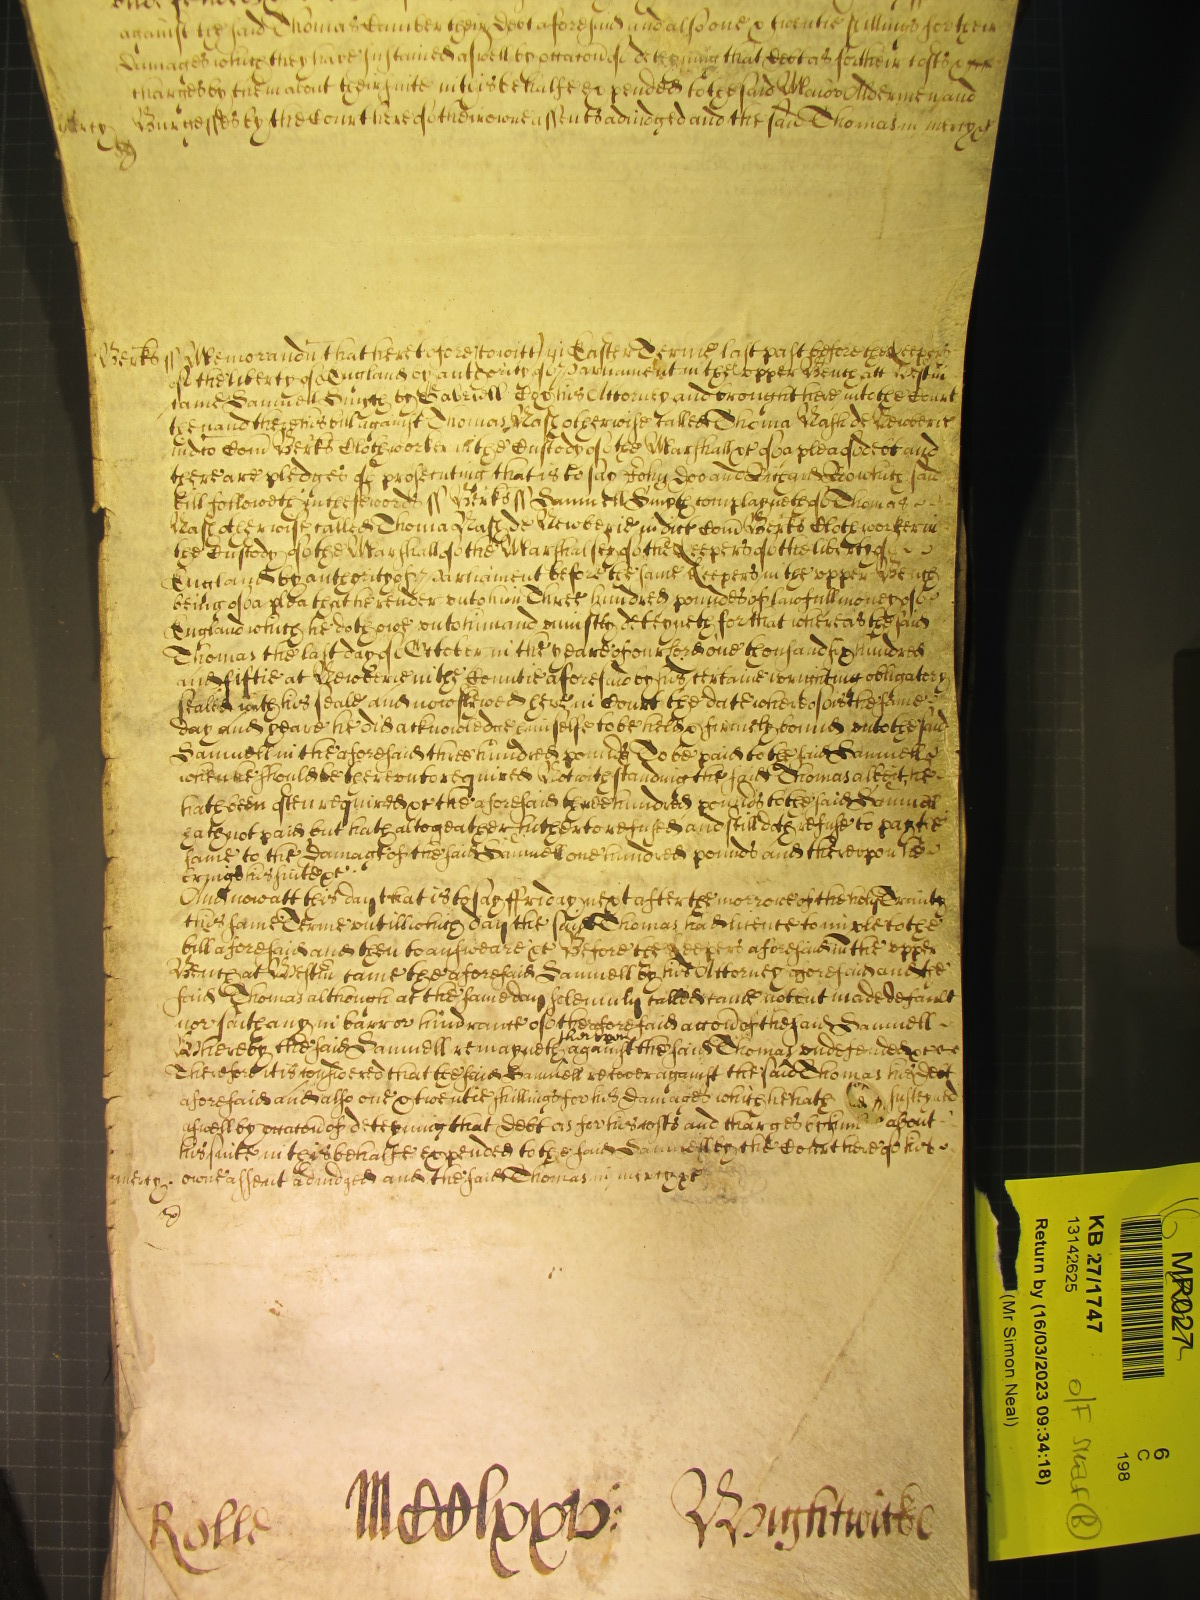 against the said Thomas Camber their Debt aforesaid and also one & twentie shillings for their
Damages which they have susteined aswell by occacon of deteyning that Debt as for their costs &
charges by them about their suite in this behalfe expended to the said Maior Aldermen and
Burgesses by the Court here of their owne assents adiudged and the said Thomas in mercy &c
mercy
Berks ss Memorandu that heretofore to witt in Easter Terme last past before the Keepers
of the liberty of England by authority of Parliament in the upper Bench att Westm
came Samuell Smyth by Gabriell his Attorney and brought here into the Court
then and there his bill against Thomas Nash otherwise called Thoma Nash de Newberie
in dco Com Berks Clothworker in the Custody of the Marshall &c of a plea of debt and
there are pledges of prosecuting that is to say John Doo and Richard Roo which said
bill followeth in these words ss Berks ss Samuell Smyth complayneth of Thomas
Nash otherwise called Thoma Nash de Newberie in dict Com Berks Clothworker in
the Custody of the Marshall of the Marshalsey of the Keepers of the liberty of
England by authority of Parliament before the same Keepers in the upper Bench
being of a plea that he render unto him Three hundred poundes of lawfull money of
England which he doth owe unto him and uniustly deteyneth for that whereas the said
Thomas the last day of October in the yeare of our Lord one thousand six hundred
and fiftie at Newberie in the Countie aforesaid by his certaine writing obligatory
sealed with his seale and now shewed here in Court the date whereof is the same
day and yeare he did acknowledge himselfe to be held & firmely bound unto the said
Samuell in the aforesaid three hundred pounds To be paid to the said Samuell
when he should be thereunto required Notwithstanding the said Thomas albeit he
hath been often required &c the aforesaid three hundred pounds to the said Samuell
hath not paid but hath altogeather hitherto refused and still doth refuse to pay the
same to the Damage of the said Samuell one hundred pounds and thereupon he
brings his suite &c
And now att this day that is to say ffriday next after the morrow of the holy Trinity
this same Terme untill which day the said Thomas had licence to imple to the
bill aforesaid and then to answeare &c Before the Keepers aforesaid in the upper
Bench at Westm came the aforesaid Samuell by his Attorney aforesaid and the
said Thomas although at the same day solemnly called came not but made default
nor saith any in barr or hindrance of the aforesaid accon of the said Samuell
thereupon
Whereby the said Samuell remayneth against the said Thomas undefended &c
Therefore it is considered that the said Samuell recover against the said Thomas his debt
aforesaid and also one & twentie shillings for his Damages which he hath susteyned
aswell by occacon of deteyning that debt as for his costs and charges by him about
his suite in this behalfe expended to the said Samuell by the Court here of his
mercy owne assent adiudged and the said Thomas in mercy &c
Rolle MCCClxxv: Wightwicke
MR027
KB 27/1747
13142625
Return by (16/03/2023 09:34:18)
(Mr Simon Neal)
6
C
198
O/F SHELF B